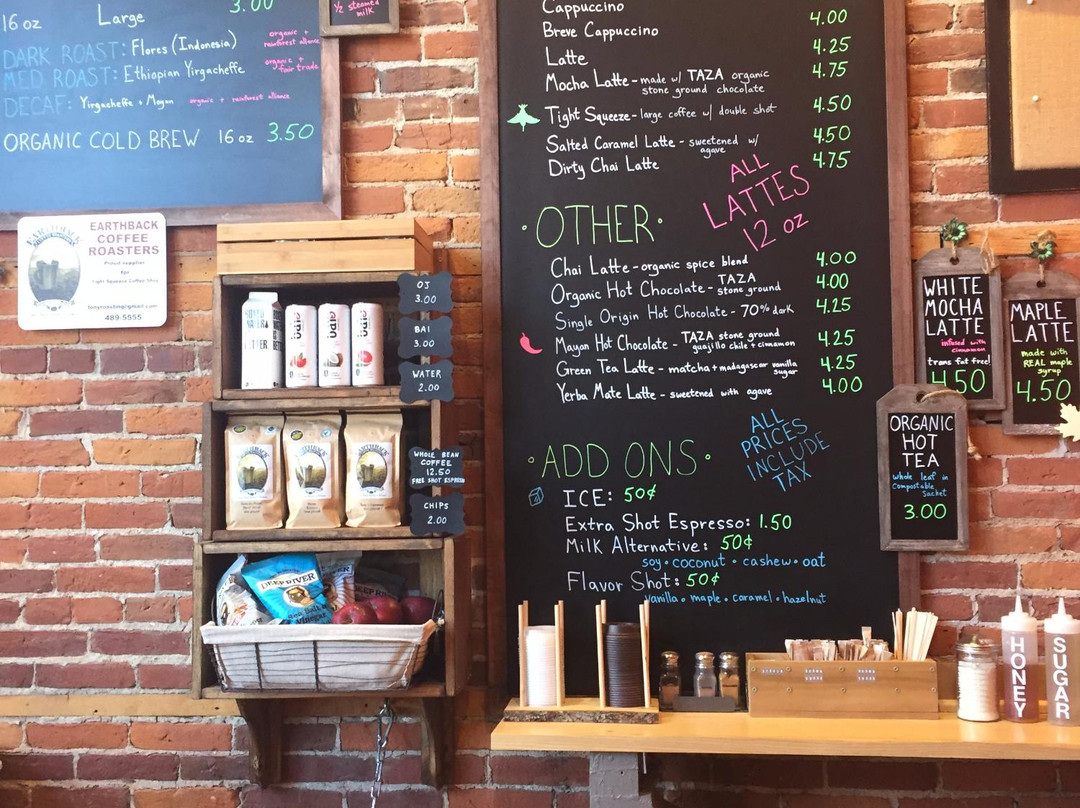 16 oz Large 3.00
DARK ROAST: Flores (Indonesia) organic + rainforest alliance
MED ROAST: Ethiopian Yirgacheffe organic + fair trade
DECAF: Yirgacheffe + Mayan organic + rainforest alliance
ORGANIC COLD BREW 16 oz 3.50
½ steamed
milk
EARTHBACK
COFFEE
ROASTERS
Proud supplier
for
Tight Squeeze Coffee Shop
489-5555
OJ
3.00
BAI
3.00
WATER
2.00
WHOLE BEAN
COFFEE
12.50
FREE SHOT ESPRESSO
CHIPS
2.00
EARTHBACK
EARTHBACK
EARTHBACK
DEEP RIVER
Sea Salt &
Vinegar
Cappuccino 4.00
Breve Cappuccino
Latte 4.25
Mocha Latte - made w/ TAZA organic 4.75
stone ground chocolate
Tight Squeeze - large coffee w/ double shot 4.50
Salted Caramel Latte - sweetened w/ 4.50
agave
Dirty Chai Latte 4.75
ALL
LATTES
12 oz
• OTHER •
Chai Latte - organic spice blend 4.00
Organic Hot Chocolate - TAZA 4.00
stone ground
Single Origin Hot Chocolate - 70% dark 4.25
Mayan Hot Chocolate - TAZA stone ground 4.25
guajillo chile + cinnamon
Green Tea Latte - matcha + madagascar vanilla 4.25
sugar
Yerba Mate Latte - sweetened with agave 4.00
ALL
PRICES
INCLUDE
TAX
• ADD ONS •
ICE: 50¢
Extra Shot Espresso: 1.50
Milk Alternative: 50¢
soy • coconut • cashew • oat
Flavor Shot: 50¢
vanilla • maple • caramel • hazelnut
WHITE
MOCHA
LATTE
infused with
cinnamon
trans fat free!
4.50
MAPLE
LATTE
made with
REAL maple
syrup
4.50
ORGANIC
HOT
TEA
whole leaf in
compostable
Sachet
3.00
HONEY
SUGAR